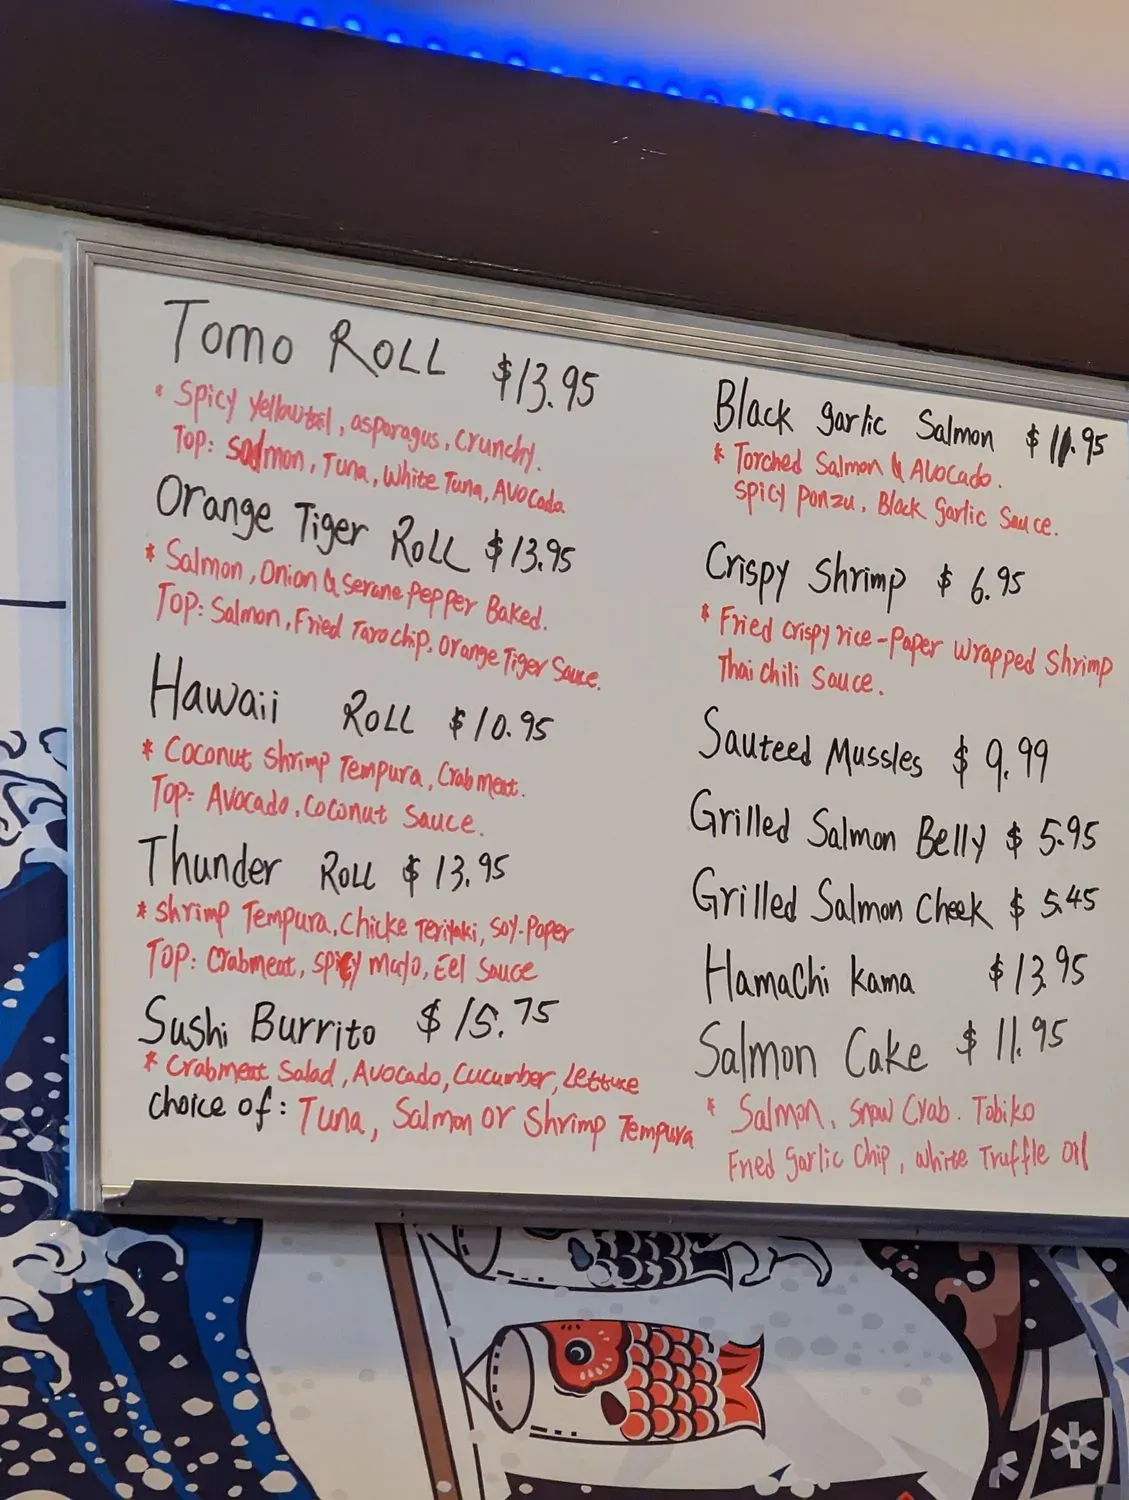 Tomo ROLL $13.95
* Spicy Yellowtail, asparagus, crunchy.
Top: salmon, Tuna, White Tuna, Avocado
Orange Tiger ROLL $13.95
* Salmon, Onion & Serane Pepper Baked.
TOP: Salmon, Fried Taro chip, Orange Tiger Sauce.
Hawaii ROLL $10.95
* Coconut shrimp Tempura, Crab meat.
Top: Avocado, Coconut Sauce.
Thunder ROLL $13.95
* Shrimp Tempura, Chicke Teriyaki, Soy-Paper
TOP: Crabmeat, spicy mayo, Eel Sauce
Sushi Burrito $15.75
* Crabmeat Salad, Avocado, Cucumber, Lettuce
choice of: Tuna, Salmon or Shrimp Tempura
Black garlic Salmon $11.95
* Torched Salmon & Avocado.
Spicy Ponzu, Black Garlic Sauce.
Crispy Shrimp $6.95
* Fried crispy rice-paper wrapped Shrimp
Thai chili Sauce.
Sauteed Mussles $9.99
Grilled Salmon Belly $5.95
Grilled Salmon Cheek $5.45
Hamachi kama $13.95
Salmon Cake $11.95
* Salmon, Snow Crab. Tobiko
Fried garlic chip, white Truffle Oil